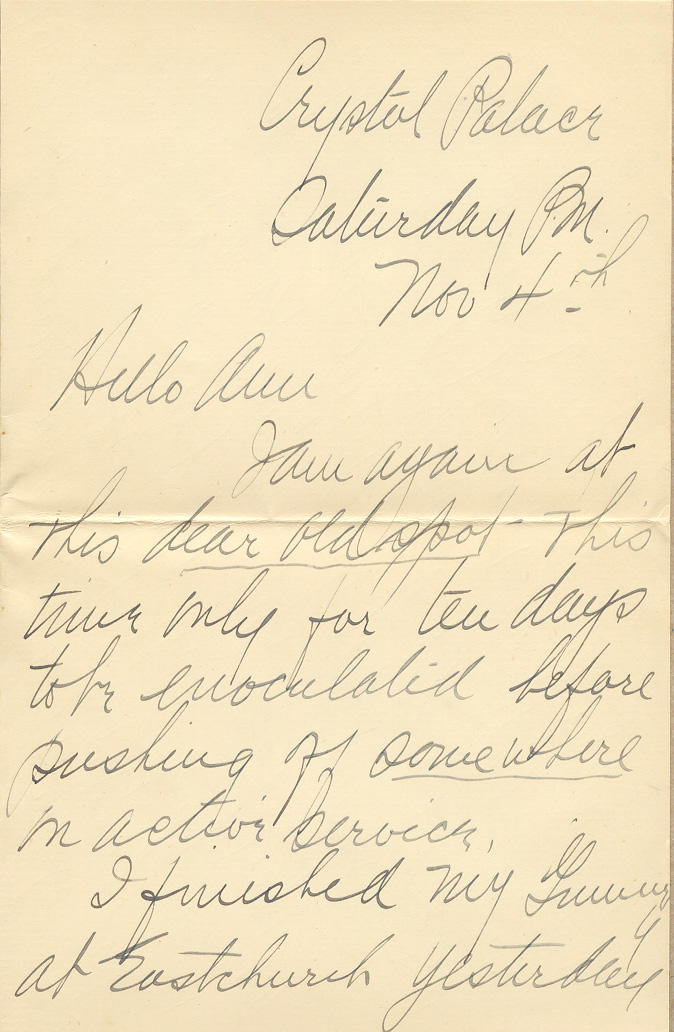 Crystal Palace
Saturday P.M.
Nov 4th
Hello Ann
I am again at
this dear old spot - This
time only for ten days
to be enoculated before
pushing off somewhere
on active service.
I finished my Gunnery
at Eastchurch yesterday